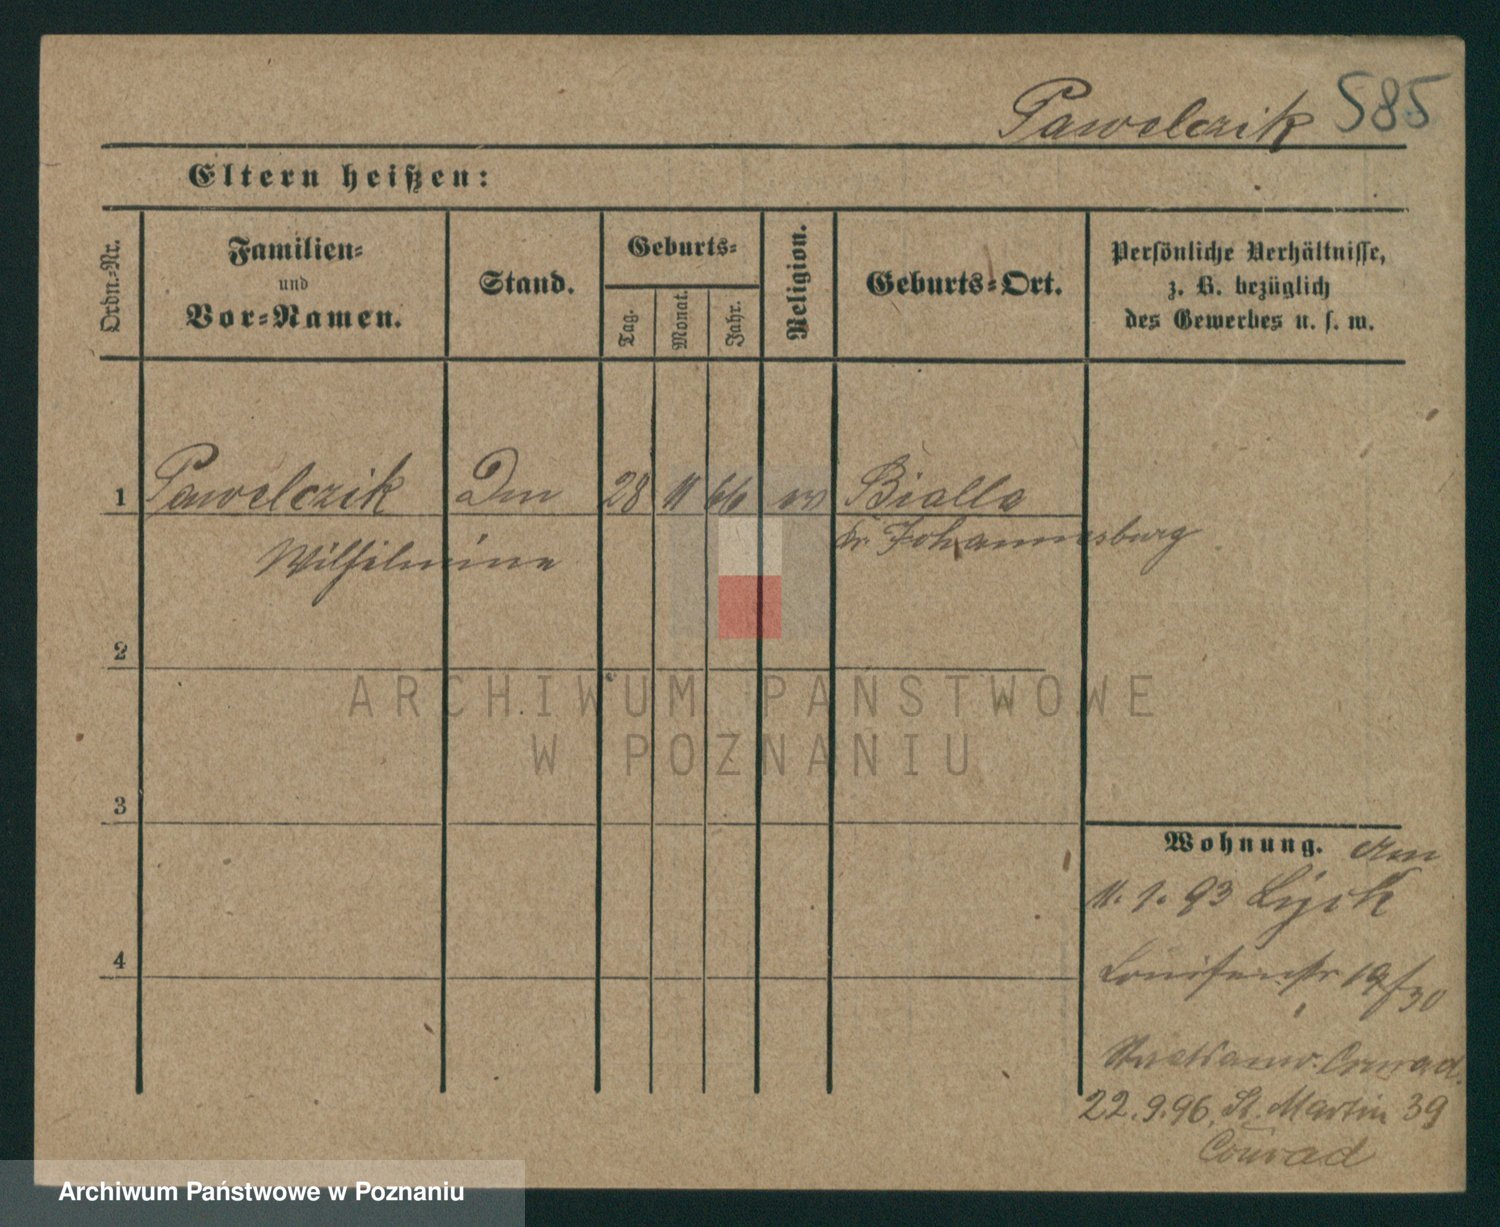 Pawelczik 585
Eltern heißen:
Ordn.-Nr.
Familien-
und
Vor-Namen.
Stand.
Geburts-
Tag.
Monat.
Jahr.
Religion.
Geburts-Ort.
Persönliche Verhältnisse,
z. B. bezüglich
des Gewerbes u. s. w.
1 Pawelczik 28 11 66 ev Bialla
Wilhelmine
Kr. Johannesburg
2
ARCHIWUM PAŃSTWOWE
W POZNANIU
3
Wohnung.
11. 1. 93 Lyck
4
Louisenstr 19/30
Staatsanw. Conrad.
22.9.96, St. Martin 39
Conrad
Archiwum Państwowe w Poznaniu